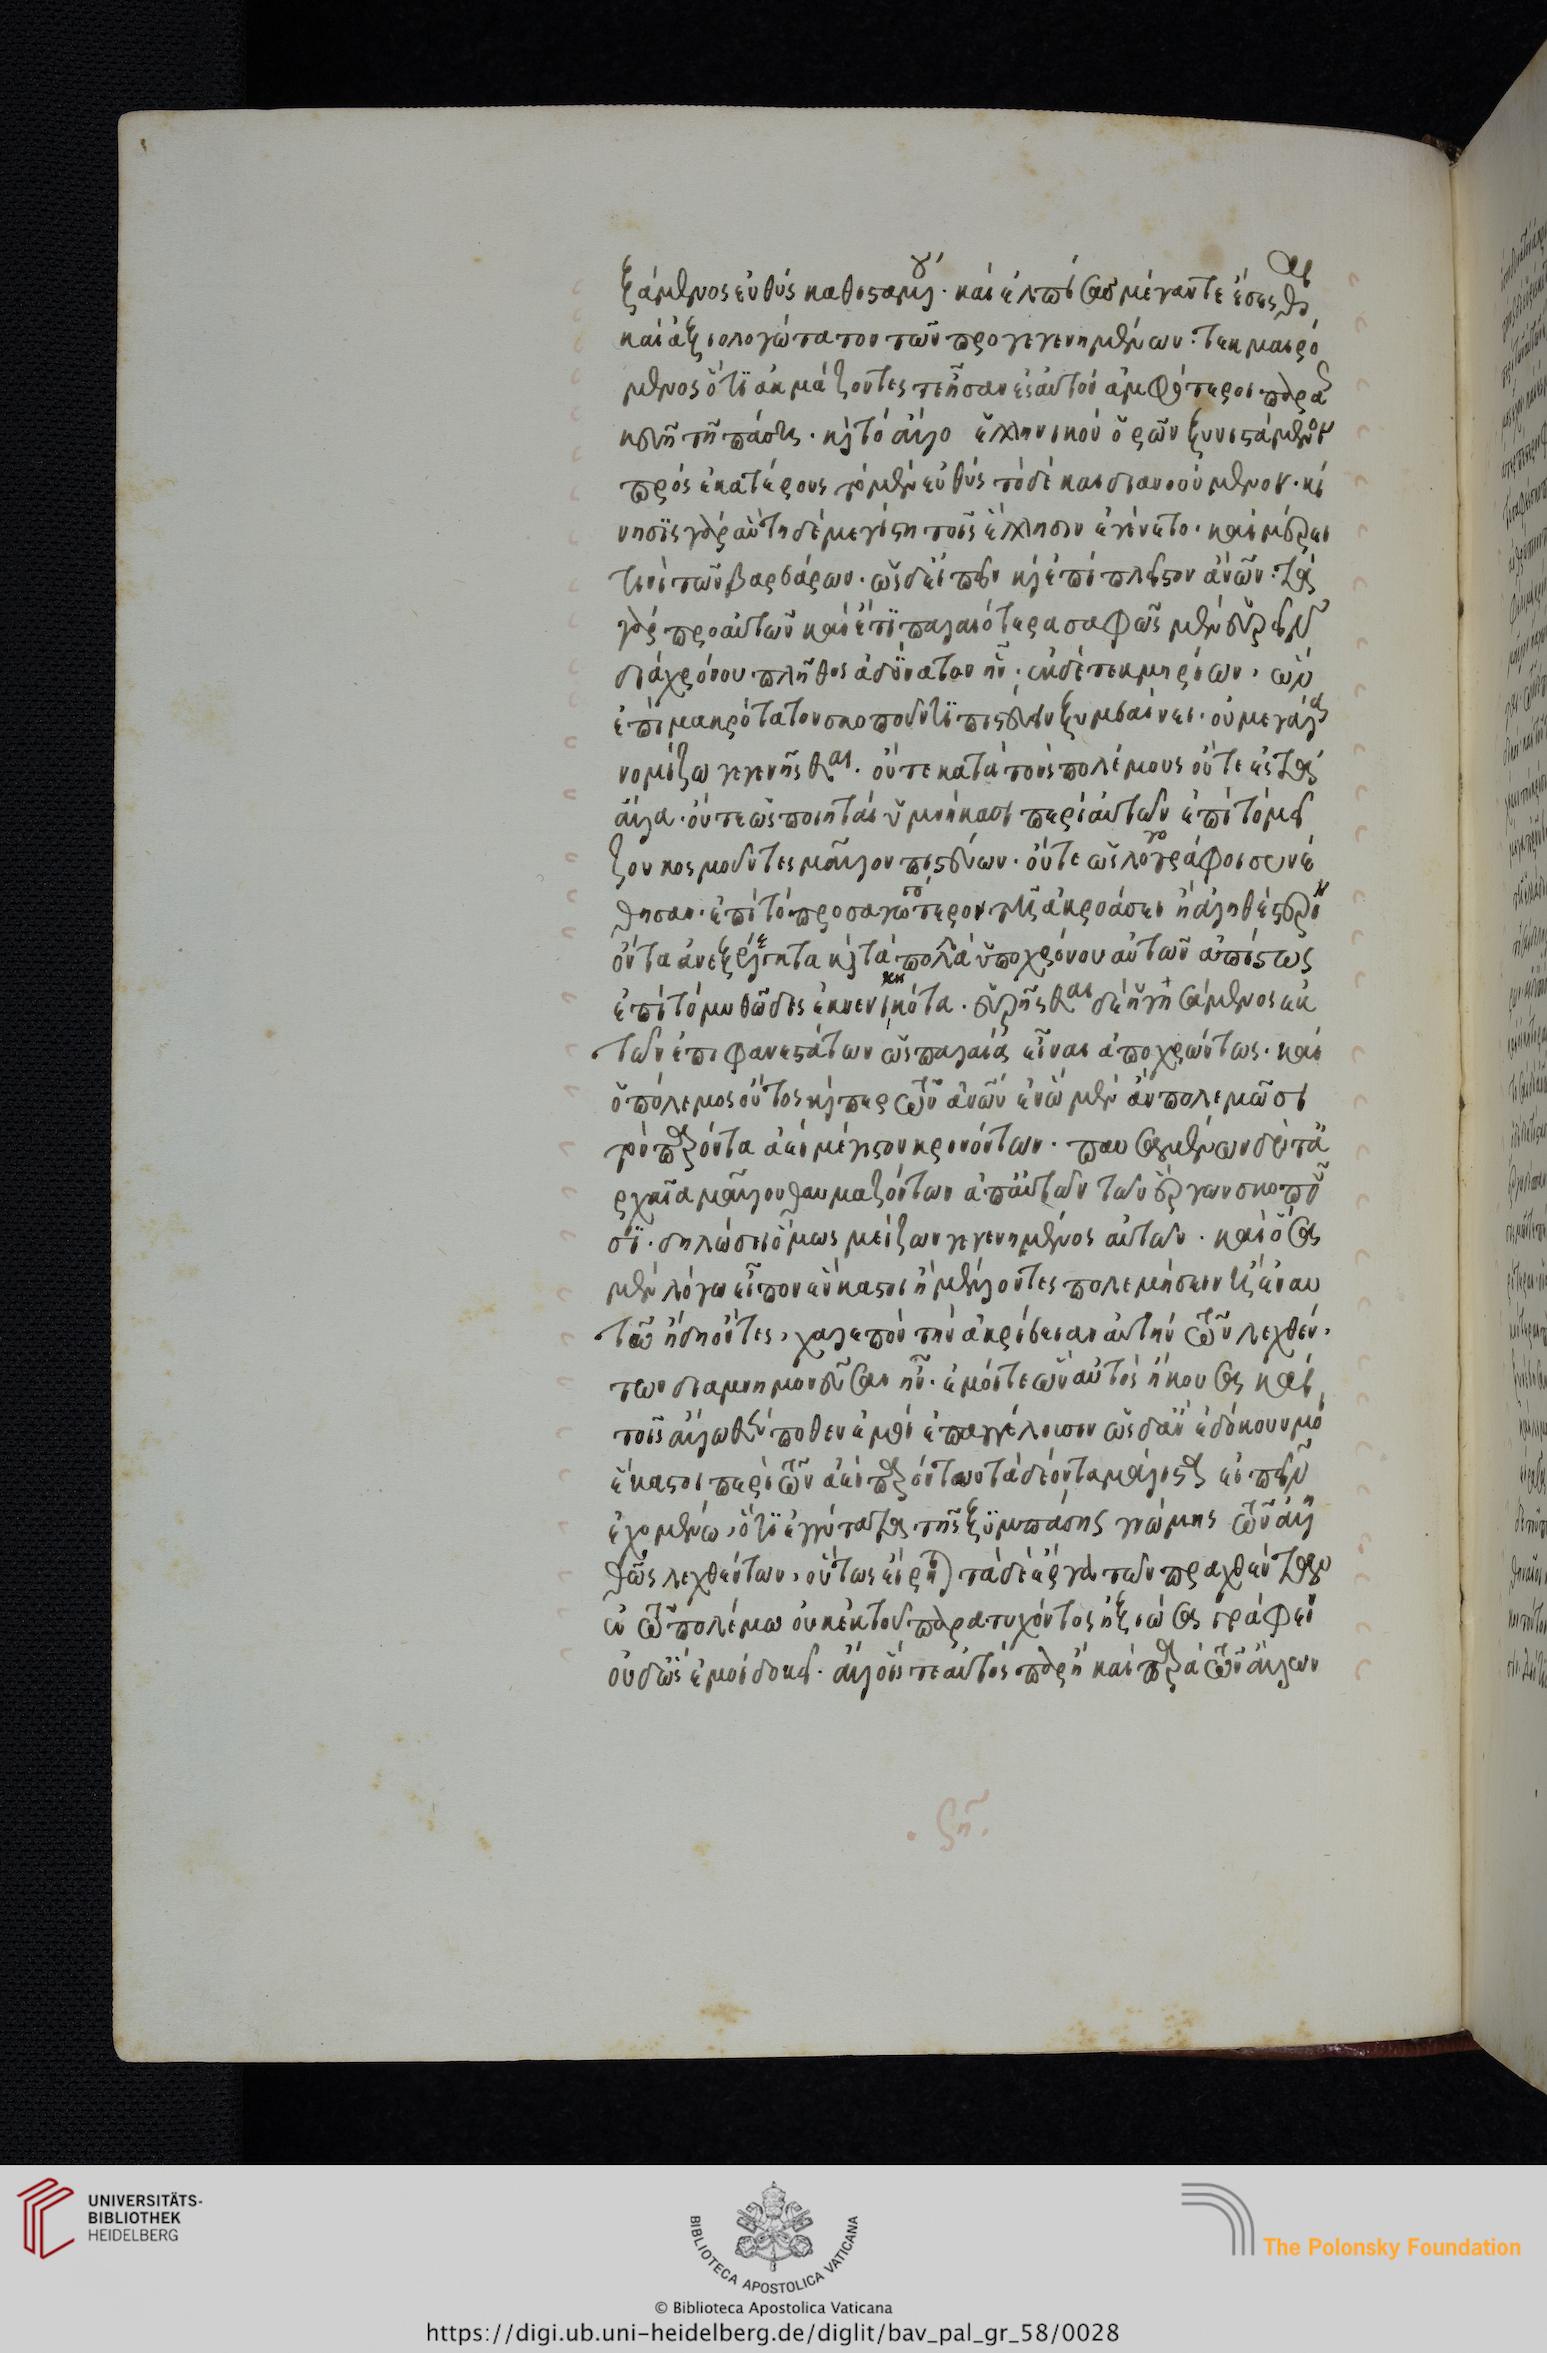 ξάμενος εὐθὺς καθισταμένου· καὶ ἐλπίσας μέγαν τε ἔσεσθαι
καὶ ἀξιολογώτατον τῶν προγεγενημένων· τεκμαιρό
μενος ὅτι ἀκμάζοντές τε ἦσαν ἐς αὐτὸν ἀμφότεροι παρασ
κευῇ τῇ πάσῃ· καὶ τὸ ἄλλο ἑλληνικὸν ὁρῶν ξυνιστάμενον
πρὸς ἑκατέρους τὸ μὲν εὐθὺς τὸ δὲ καὶ διανοούμενον· κί
νησις γὰρ αὕτη δὲ μεγίστη τοῖς ἕλλησιν ἐγένετο· καὶ μέρει
τινὶ τῶν βαρβάρων· ὡς δ' εἰπεῖν καὶ ἐπὶ πλεῖστον ἀνῶν· τὰ
γὰρ πρὸ αὐτῶν καὶ ἔτι παλαιότερα σαφῶς μὲν εὑρεῖν
διὰ χρόνου πλῆθος ἀδύνατον ἦν· ἐκ δὲ τεκμηρίων, ὧν
ἐπὶ μακρότατον σκοποῦντι ξυμβαίνει· οὐ μεγάλα
νομίζω γεγενῆσθαι· οὔτε κατὰ τοὺς πολέμους οὔτε ἐς τὰ
ἄλλα· οὔτε ὡς ποιηταὶ ὑμνήκασι περὶ αὐτῶν ἐπὶ τὸ μεῖ
ζον κοσμοῦντες μᾶλλον πιστεύων· οὔτε ὡς λογογράφοι συνέ
θησαν· ἐπὶ τὸ προσαγωγότερον τῇ ἀκροάσει ἢ ἀληθέστερον
ὄντα ἀνεξέλεγκτα καὶ τὰ πολλὰ ὑπὸ χρόνου αὐτῶν ἀπίστως
ἐπὶ τὸ μυθῶδες ἐκνενικηκότα· εὑρῆσθαι δὲ ἡγησάμενος ἐκ
τῶν ἐπιφανεστάτων ὡς παλαιὰ εἶναι ἀποχρώντως· καὶ
ὁ πόλεμος οὗτος καίπερ τῶν ἀνῶν ἐν ᾧ μὲν ἂν πολεμῶσι
τὸν παρόντα ἀεὶ μέγιστον κρινόντων· παυσαμένων δὲ τὰ ἀ
ρχαῖα μᾶλλον θαυμαζόντων ἀπ' αὐτῶν τῶν ἔργων σκοποῦ
σι· δηλώσει ὅμως μείζων γεγενημένος αὐτῶν· καὶ ὅσα
μὲν λόγω εἶπον ἕκαστοι ἢ μέλλοντες πολεμήσειν ἢ ἐν αυ
τῶ ἤδη ὄντες, χαλεπὸν τὴν ἀκρίβειαν αὐτὴν τῶν λεχθέν
των διαμνημονεῦσαι ἦν· ἐμοί τε ὧν αὐτὸς ἤκουσα καὶ
τοῖς ἄλλωθέν ποθεν ἐμοὶ ἐπαγγέλουσιν ὡς δ' ἂν ἐδόκουν μοι
ἕκαστοι περὶ τῶν ἀεὶ παρόντων τὰ δέοντα μάλιστα εἰπεῖν
ἐχομένω, ὅτι ἐγγύτατα τῆς ξυμπάσης γνώμης τῶν ἀλη
θῶς λεχθέντων, οὕτως εἴρηται τὰ δὲ ἔργα τῶν πραχθέντων
ἐν τῶ πολέμω οὐκ ἐκ τοῦ παρατυχόντος ἠξίωσα γράφειν
οὐδ' ὡς ἐμοὶ δοκεῖ· ἀλλ' οἷς τε αὐτὸς παρῆ καὶ παρὰ τῶν ἄλλων
UNIVERSITÄTS-
BIBLIOTHEK
HEIDELBERG
BIBLIOTECA APOSTOLICA VATICANA
The Polonsky Foundation
© Biblioteca Apostolica Vaticana
https://digi.ub.uni-heidelberg.de/diglit/bav_pal_gr_58/0028